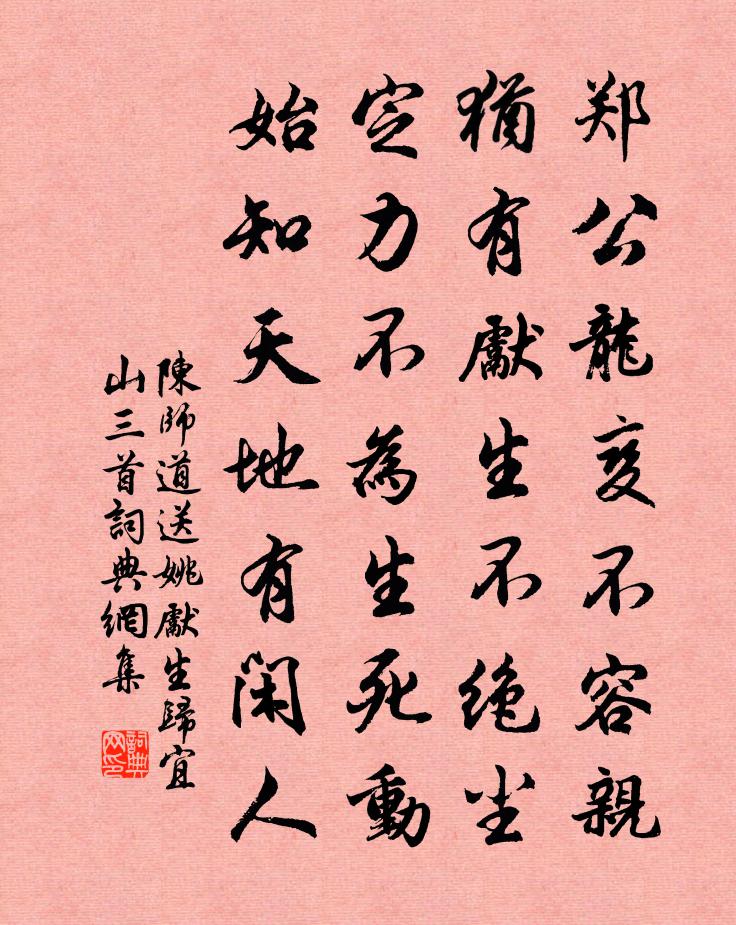 郑公龍变不容親
猶有獻生不绝尘
定力不為生死動
始知天地有闲人
陳師道送姚獻生歸宜
山三首詞典網集
詞典网印